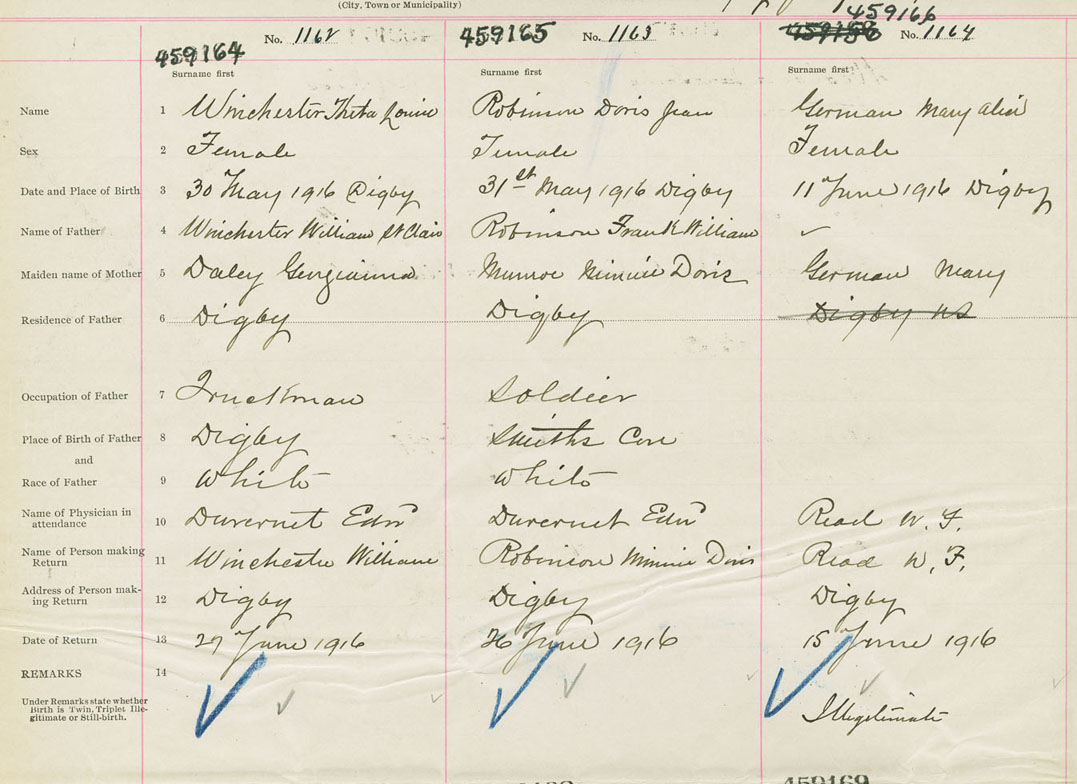 (City, Town or Municipality)
459166
459164 No. 1162 459165 No. 1163 459156 No. 1164
Surname first Surname first Surname first
Name 1 Winchester Theta Louise Robinson Doris Jean German Mary Alice
Sex 2 Female Female Female
Date and Place of Birth 3 30 May 1916 Digby 31st May 1916 Digby 11 June 1916 Digby
Name of Father 4 Winchester William St Clair Robinson Frank William ✓
Maiden name of Mother 5 Daley Georgianna Munroe Minnie Doris German Mary
Residence of Father 6 Digby Digby Digby NS
Occupation of Father 7 Truckman Soldier
Place of Birth of Father 8 Digby Smiths Cove
and
Race of Father 9 White White
Name of Physician in
attendance 10 Duvernet Edw Duvernet Edw Read W. F.
Name of Person making
Return 11 Winchester William Robinson Minnie Doris Read W. F.
Address of Person mak-
ing Return 12 Digby Digby Digby
Date of Return 13 27 June 1916 26 June 1916 15 June 1916
REMARKS 14
Under Remarks state whether
Birth is Twin, Triplet Ille-
gitimate or Still-birth. Illegitimate
459169